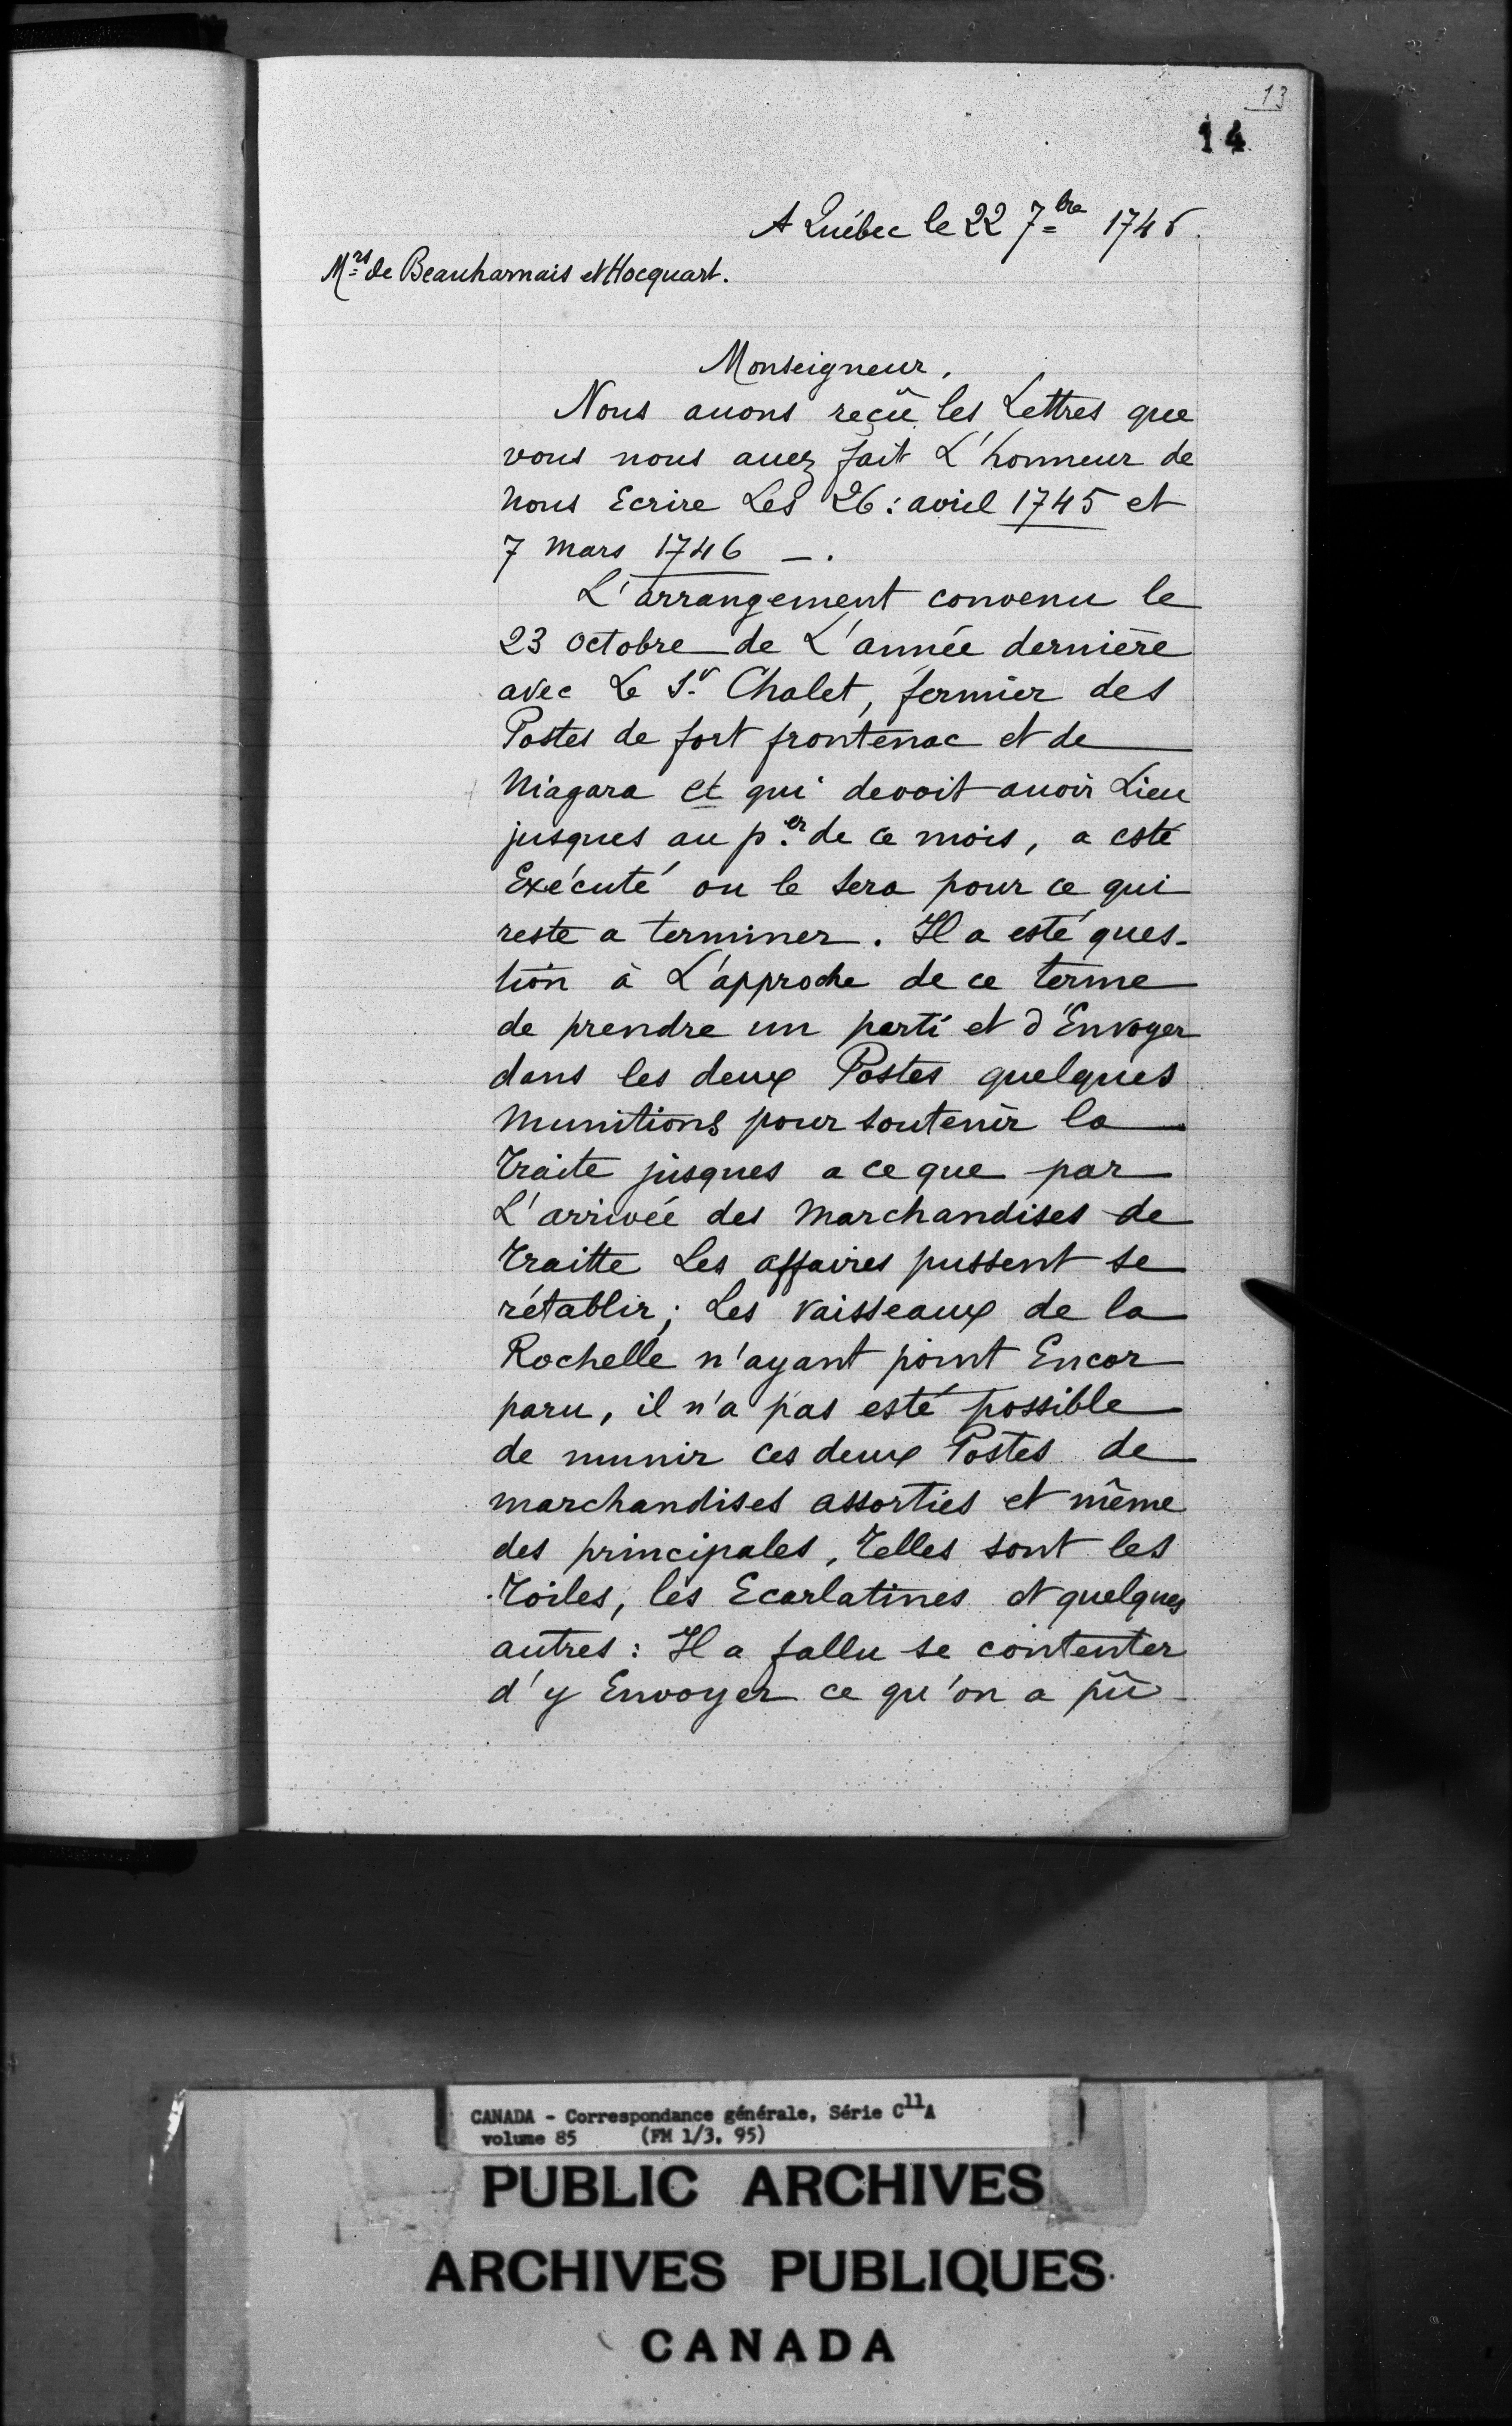 13
14
A Québec le 22 7bre 1746.
Mrs de Beauharnais et Hocquart.
Monseigneur,
Nous auons reçû les Lettres que
vous nous auez fait L'honneur de
nous Ecrire Les 26: avril 1745 et
7 mars 1746 —.
L'arrangement convenu le
23 octobre de L'année dernière
avec Le Sr Chalet, fermier des
Postes de fort frontenac et de
Niagara et qui devoit auoir Lieu
jusques au per de ce mois, a esté
Exécuté ou le sera pour ce qui
reste a terminer. Il a esté ques-
tion à L'approche de ce terme
de prendre un parti et d'Envoyer
dans les deux Postes quelques
munitions pour soutenir la
Traite jusques a ce que par
L'arrivée des marchandises de
Traitte Les affaires pussent se
rétablir; Les vaisseaux de la
Rochelle n'ayant point Encor
paru, il n'a pas esté possible
de munir ces deux Postes de
marchandises assorties et même
des principales, Telles sont les
Toiles, les Ecarlatines et quelques
autres: Il a fallu se contenter
d'y Envoyer ce qu'on a pû
CANADA - Correspondance générale, Série C11A
volume 85 (FM 1/3, 95)
PUBLIC ARCHIVES
ARCHIVES PUBLIQUES
CANADA